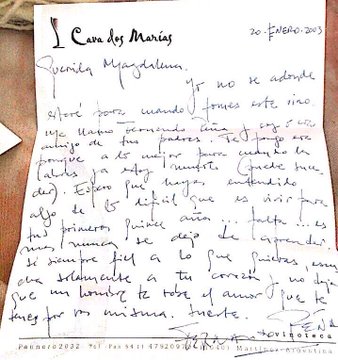 Cava dos Marías
20. ENERO. 2003
Querida Magdalena.
Yo no se adonde
estaré para cuando tomes este vino.
Me llamo Fernando Peña y soy
amigo de tus padres. Te pongo
porque a lo mejor para cuando la
abras ya estoy muerto (puede suce
der). Espero que hayas entendido
algo de lo difícil que es vivir para
tus primeros quince años... falta... es
mas nunca se deja de aprender.
Sé siempre fiel a lo que quieras, escu
cha solamente a tu corazón y no dejes
que un hombre te robe el amor que te
tenes por vos misma. Suerte.
PEÑA
vinoteca
Peunero2032 Tel-Fax 541) 4792097 Martinez-Argentina